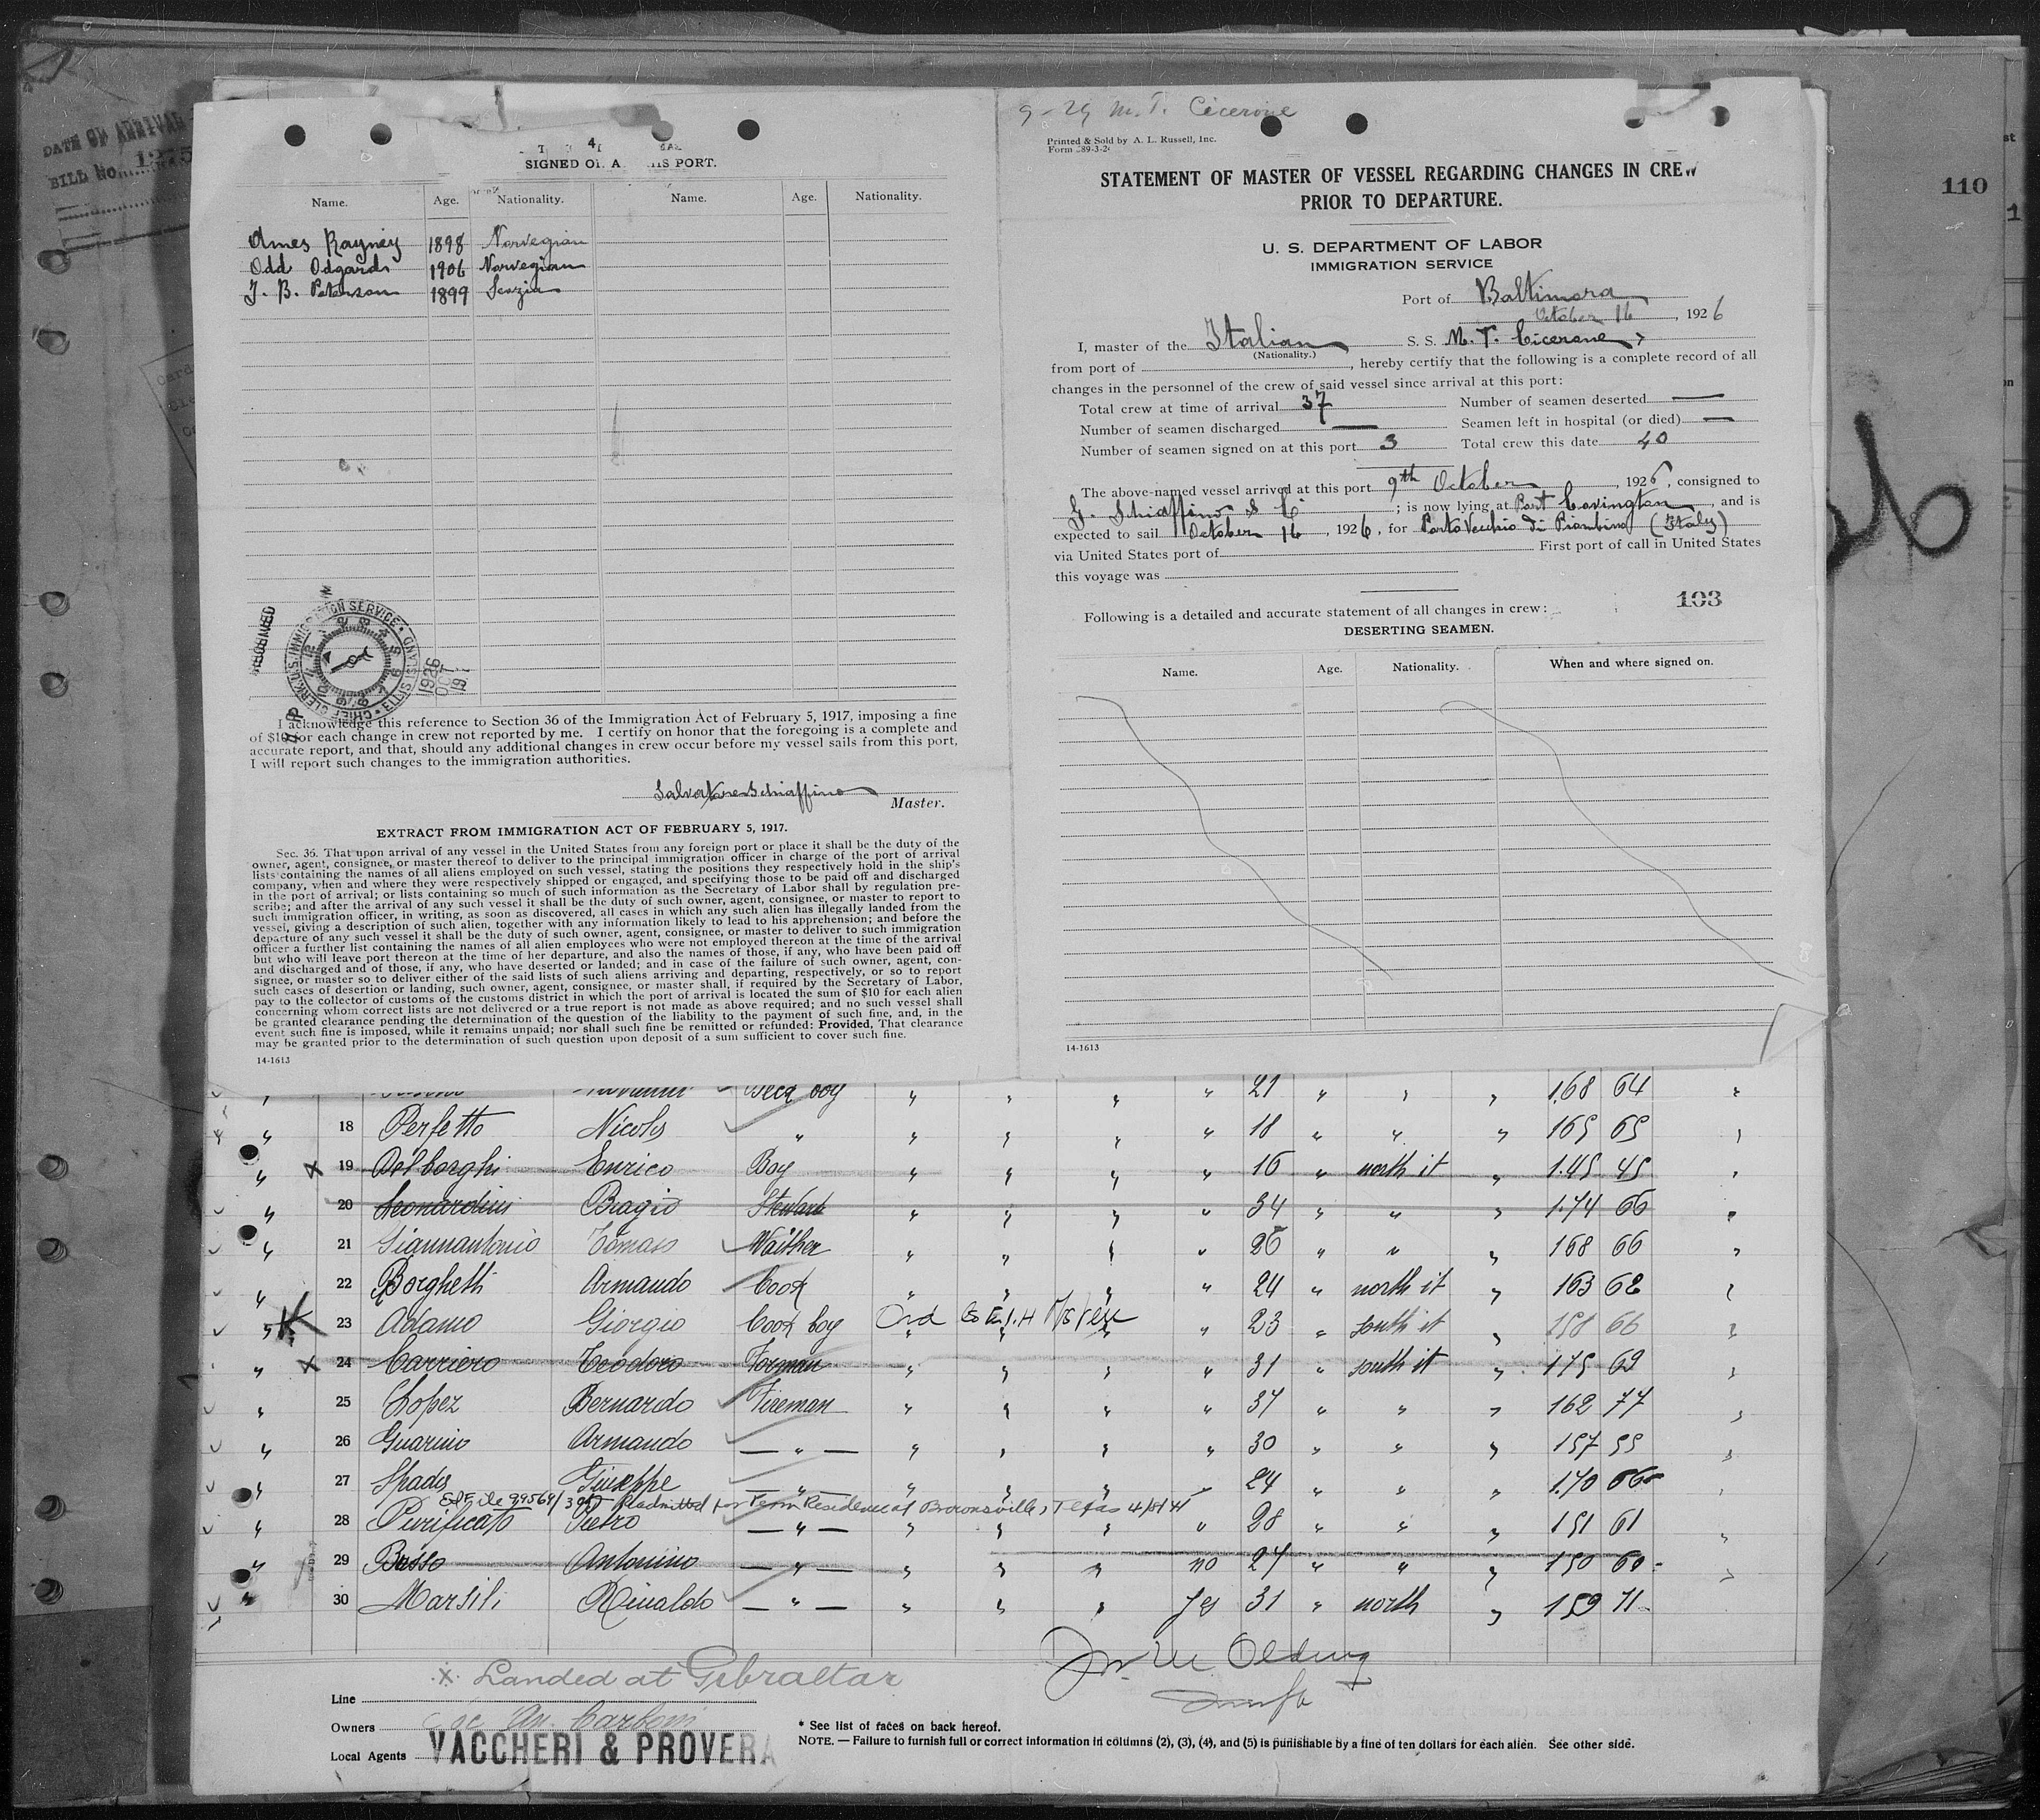 DATE OF ARRIVAL
BILL No. 1275
110
4
SIGNED ON AT THIS PORT.
Name. Age. Nationality. Name. Age. Nationality.
1898 Norwegian
Odd Odgard 1906 Norwegian
1899
U.S. IMMIGRATION SERVICE
CHIEF CLERK
1926
OCT
19
I acknowledge this reference to Section 36 of the Immigration Act of February 5, 1917, imposing a fine
of $10 for each change in crew not reported by me. I certify on honor that the foregoing is a complete and
accurate report, and that, should any additional changes in crew occur before my vessel sails from this port,
I will report such changes to the immigration authorities.
Salvatore Schiaffino
Master.
EXTRACT FROM IMMIGRATION ACT OF FEBRUARY 5, 1917.
Sec. 36. That upon arrival of any vessel in the United States from any foreign port or place it shall be the duty of the
owner, agent, consignee, or master thereof to deliver to the principal immigration officer in charge of the port of arrival
lists containing the names of all aliens employed on such vessel, stating the positions they respectively hold in the ship's
company, when and where they were respectively shipped or engaged, and specifying those to be paid off and discharged
in the port of arrival; or lists containing so much of such information as the Secretary of Labor shall by regulation pre-
scribe; and after the arrival of any such vessel it shall be the duty of such owner, agent, consignee, or master to report to
such immigration officer, in writing, as soon as discovered, all cases in which any such alien has illegally landed from the
vessel, giving a description of such alien, together with any information likely to lead to his apprehension; and before the
departure of any such vessel it shall be the duty of such owner, agent, consignee, or master to deliver to such immigration
officer a further list containing the names of all alien employees who were not employed thereon at the time of the arrival
but who will leave port thereon at the time of her departure, and also the names of those, if any, who have been paid off
and discharged and of those, if any, who have deserted or landed; and in case of the failure of such owner, agent, con-
signee, or master so to deliver either of the said lists of such aliens arriving and departing, respectively, or so to report
such cases of desertion or landing, such owner, agent, consignee, or master shall, if required by the Secretary of Labor,
pay to the collector of customs of the customs district in which the port of arrival is located the sum of $10 for each alien
concerning whom correct lists are not delivered or a true report is not made as above required; and no such vessel shall
be granted clearance pending the determination of the question of the liability to the payment of such fine, and, in the
event such fine is imposed, while it remains unpaid; nor shall such fine be remitted or refunded: Provided, That clearance
may be granted prior to the determination of such question upon deposit of a sum sufficient to cover such fine.
14-1613
9-29 M. T. Cicerone
Printed & Sold by A. L. Russell, Inc.
Form 689-3-24
STATEMENT OF MASTER OF VESSEL REGARDING CHANGES IN CREW
PRIOR TO DEPARTURE.
U. S. DEPARTMENT OF LABOR
IMMIGRATION SERVICE
Port of Baltimora
October 16, 1926
I, master of the Italian S. S. M. T. Cicerone,
(Nationality.)
from port of , hereby certify that the following is a complete record of all
changes in the personnel of the crew of said vessel since arrival at this port:
Total crew at time of arrival 37 Number of seamen deserted —
Number of seamen discharged — Seamen left in hospital (or died) —
Number of seamen signed on at this port 3 Total crew this date 40
The above-named vessel arrived at this port 9th October, 1926, consigned to
G. Schiaffino & C. ; is now lying at Port Covington, and is
expected to sail October 16, 1926, for Porto Vecchio di Piombino (Italy)
via United States port of First port of call in United States
this voyage was
103
Following is a detailed and accurate statement of all changes in crew:
DESERTING SEAMEN.
Name. Age. Nationality. When and where signed on.
14-1613
Deck boy " " " " 21 " " " 1.68 64 "
" 18 Perfetto Nicola " " " " " 18 " " " 165 65 "
" x 19 Del borghi Enrico Boy " " " " 16 " north it " 1.45 45 "
" 20 Leonardini Biagio Steward " " " " 34 " " " 1.74 66 "
" 21 Giannantonio Tomaso Waither " " " " 26 " " " 168 66 "
" 22 Borghetti Armando Cook " " " " 24 " north it " 163 62 "
" 23 Adamo Giorgio Cook boy " " " " 23 " south it " 158 66 "
" x 24 Carriero Teodoro Forman " " " " 31 " south it " 175 69 "
" 25 Lopez Bernardo Fireman " " " " 37 " " " 162 77 "
" 26 Guarino Armando — " — " " " " 30 " " " 157 55 "
" 27 Spada Giuseppe — " — " " " " 24 " " " 1.70 66 "
Readmitted for Perm Residence at Brownsville, Texas
" 28 Purificato Pietro — " — " " " " 28 " " " 151 61 "
" 29 Basso Antonino — " — " " " no 27 " " " 150 60 "
" 30 Marsili Rinaldo — " — " " " yes 31 " north " 159 71
x Landed at Gibraltar
Line
Owners
Local Agents VACCHERI & PROVERA
* See list of races on back hereof.
NOTE. — Failure to furnish full or correct information in columns (2), (3), (4), and (5) is punishable by a fine of ten dollars for each alien. See other side.